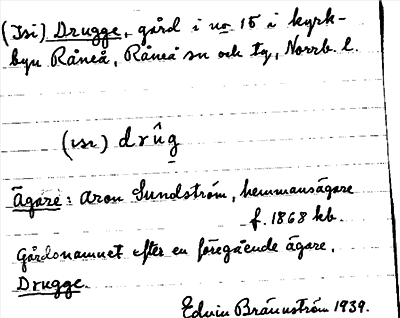 (Isi) Drugge, gård i no 15 i kyrk-
byn Råneå, Råneå sn och tg, Norrb. l.
drûg
Ägare: Aron Sundström, hemmansägare
f. 1868 kb.
Gårdsnamnet efter en föregående ägare,
Drugge.
Edvin Brännström 1939.